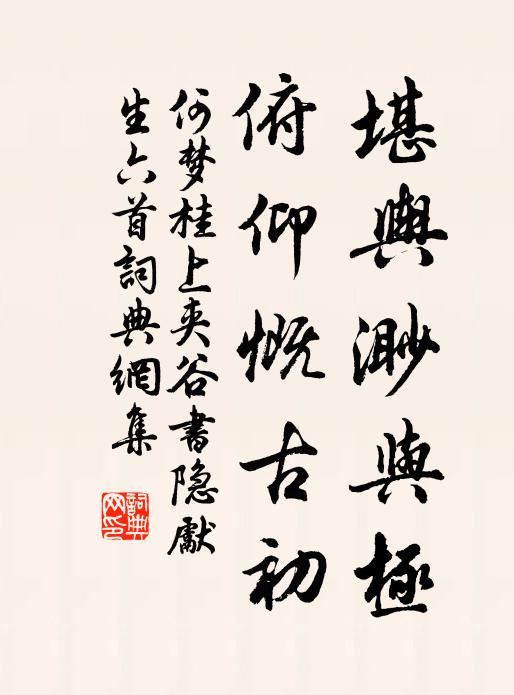 堪輿渺與極
俯仰慨古初
何梦桂上夾谷書隐獻
生六首詞典網集
詞典網印